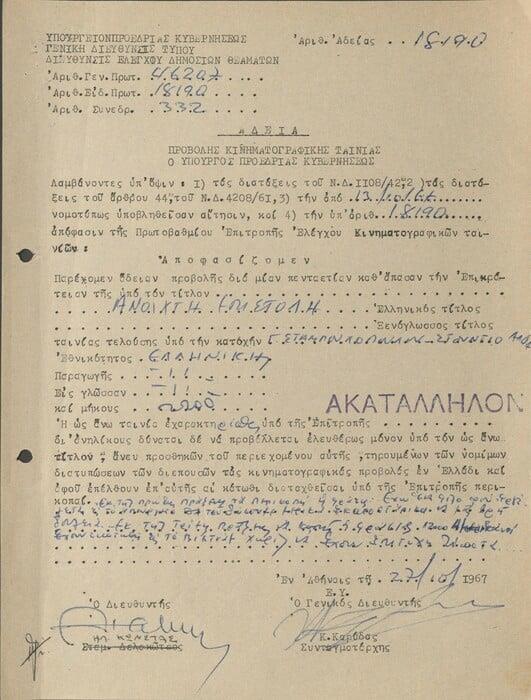 ΥΠΟΥΡΓΕΙΟΝ ΠΡΟΕΔΡΙΑΣ ΚΥΒΕΡΝΗΣΕΩΣ
ΓΕΝΙΚΗ ΔΙΕΥΘΥΝΣΙΣ ΤΥΠΟΥ
ΔΙΕΥΘΥΝΣΙΣ ΕΛΕΓΧΟΥ ΔΗΜΟΣΙΩΝ ΘΕΑΜΑΤΩΝ
Ἀριθ. Ἀδείας . . 18190
Ἀριθ.Γεν.Πρωτ. 46207 . . . .
Ἀριθ.Εἰδ.Πρωτ. 18190 . . . .
Ἀριθ. Συνεδρ. 332 . . . .
ΑΔΕΙΑ
ΠΡΟΒΟΛΗΣ ΚΙΝΗΜΑΤΟΓΡΑΦΙΚΗΣ ΤΑΙΝΙΑΣ
Ο ΥΠΟΥΡΓΟΣ ΠΡΟΕΔΡΙΑΣ ΚΥΒΕΡΝΗΣΕΩΣ
Λαμβάνοντες ὑπ'ὄψιν : 1) τάς διατάξεις τοῦ Ν.Δ.1108/42,2 )τάς διατά-
ξεις τοῦ ἄρθρου 44,τοῦ Ν.Δ.4208/61,3) τήν ἀπό 13/10/67
νομοτύπως ὑποβληθεῖσαν αἴτησιν, καί 4) τήν ὑπ'ἀριθ. 18190
ἀπόφασιν τῆς Πρωτοβαθμίου Ἐπιτροπῆς Ἐλέγχου Κινηματογραφικῶν ται-
νιῶν :
Ἀποφασίζομεν
Παρέχομεν ἄδειαν προβολῆς διά μίαν πενταετίαν καθ'ἅπασαν τήν Ἐπικρά-
τειαν τῆς ὑπό τόν τίτλον
ΑΝΟΙΧΤΗ ΕΠΙΣΤΟΛΗ Ἑλληνικός τίτλος
Ξενόγλωσσος τίτλος
ταινίας τελούσης ὑπό τήν κατοχήν Γ. ΣΤΑΜΠΟΥΛΟΠΟΥΛΟΥ
Ἐθνικότητος ΕΛΛΗΝΙΚΗ
Παραγωγῆς - 11 -
Εἰς γλῶσσαν - 11 -
καί μήκους 2200
ΑΚΑΤΑΛΛΗΛΟΝ
Ἡ ὡς ἄνω ταινία ἐχαρακτηρίσθη ὑπό τῆς Ἐπιτροπῆς . . . . . . .
δι'ἀνηλίκους δύναται δέ νά προβάλλεται ἐλευθέρως μόνον ὑπό τόν ὡς ἄνω
τίτλον , ἄνευ προσθηκῶν τοῦ περιεχομένου αὐτῆς ,τηρουμένων τῶν νομίμων
διατυπώσεων τῶν διεπουσῶν τάς κινηματογραφικάς προβολάς ἐν Ἑλλάδι καί
ἀφοῦ ἐπέλθουν ἐπ'αὐτῆς αἱ κάτωθι διαταχθεῖσαι ὑπό τῆς Ἐπιτροπῆς περι-
κοπαί.
Ἐν Ἀθήναις τῇ . 27/10/1967
Ε.Υ.
Ὁ Διευθυντής
Ὁ Γενικός Διευθυντής
ΗΛ. ΚΩΝΣΤΑΣ
Σταμ. Δελοκῶτσας
Κ.Καρύδας
Συνταγματάρχης